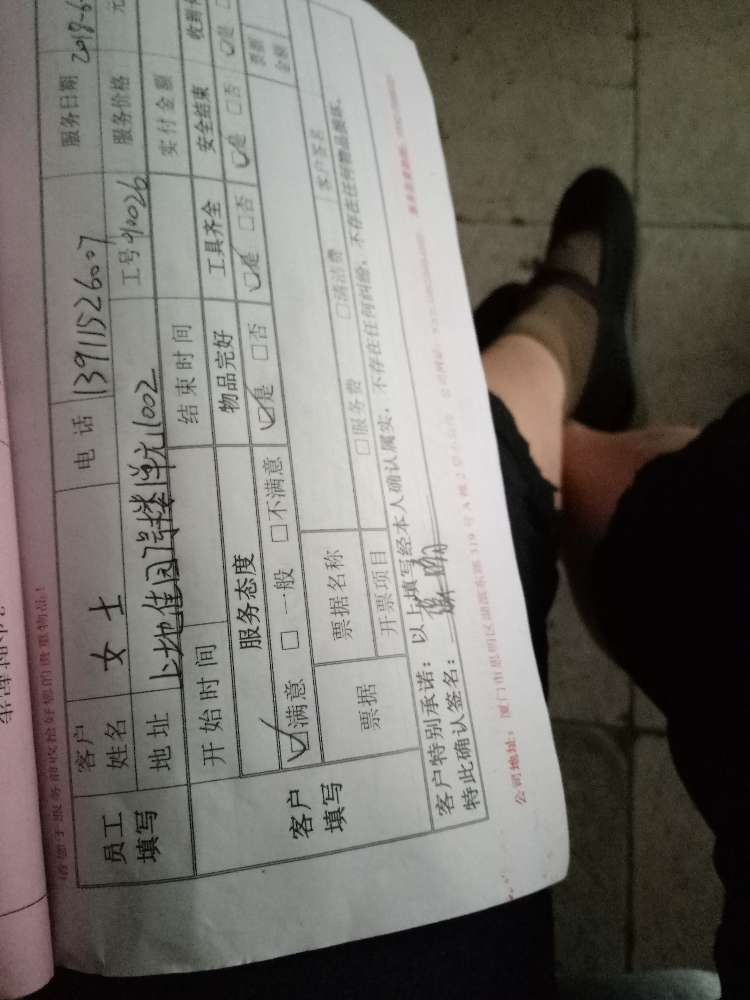 请您于服务前收拾好您的贵重物品！
员工填写 客户姓名 女士 电话 13911526007 服务日期 2018-6
地址 上地佳园7号楼1单元1002 工号 910026 服务价格 元
客户填写 开始时间 结束时间 实付金额
服务态度 物品完好 工具齐全 安全结束 收到
☑满意 □一般 □不满意 ☑是 □否 ☑是 □否 ☑是 □否 ☑是
票据 票据名称 票据金额
开票项目 □服务费 □清洁费 客户签名
客户特别承诺：以上填写经本人确认属实，不存在任何纠纷，不存在任何物品损坏。
特此确认签名：
公司地址：厦门市思明区湖滨东路319号A栋2